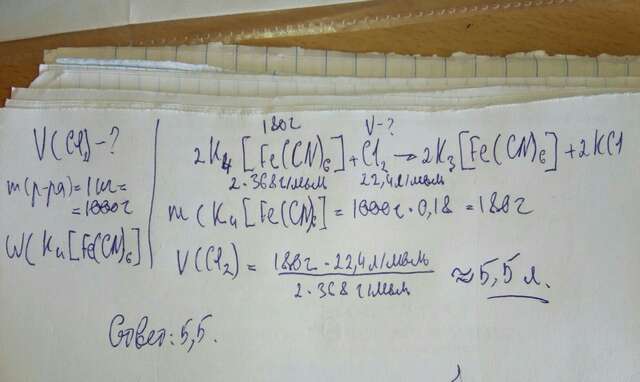 V(Cl₂) - ?
m(р-ра) = 1кг =
= 1000г
W(K₄[Fe(CN)₆]
180г V-?
2K₄[Fe(CN)₆] + Cl₂ → 2K₃[Fe(CN)₆] + 2KCl
2·368г/моль 22,4л/моль
m(K₄[Fe(CN)₆] = 1000г · 0,18 = 180г
V(Cl₂) = 180г · 22,4л/моль / 2·368г/моль ≈ 5,5 л.
Ответ: 5,5.